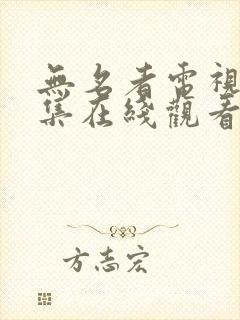 無名者電視
集在綫觀看
方志宏